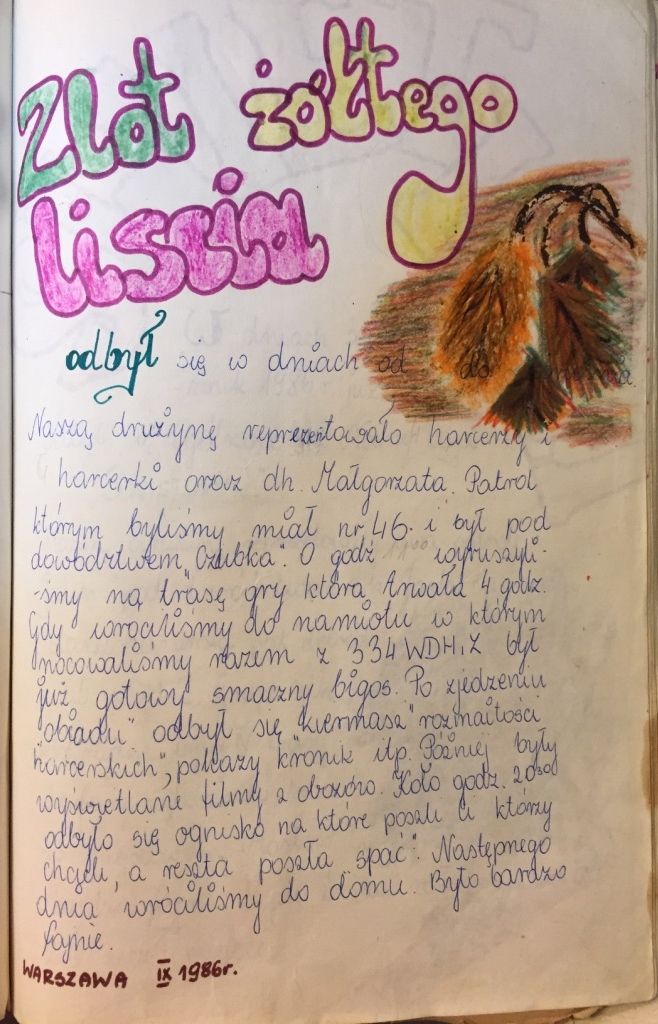 Zlot żółtego
liścia
odbył się w dniach od do
Naszą drużynę reprezentowało harcerzy i
harcerki oraz dh. Małgorzata. Patrol
którym byliśmy miał nr 46. i był pod
dowództwem „Czubka”. O godz wyruszyli-
-śmy na trasę gry która trwała 4 godz.
Gdy wróciliśmy do namiotu w którym
nocowaliśmy razem z 334 WDH.iZ był
już gotowy smaczny bigos. Po zjedzeniu
"obiadu" odbył się "kiermasz" rozmaitości
harcerskich", pokazy kronik itp. Później były
wyświetlane filmy z obozów. Koło godz. 20³⁰
odbyło się ognisko na które poszli ci którzy
chcieli, a reszta poszła „spać”. Następnego
dnia wróciliśmy do domu. Było bardzo
fajnie.
WARSZAWA IX 1986r.